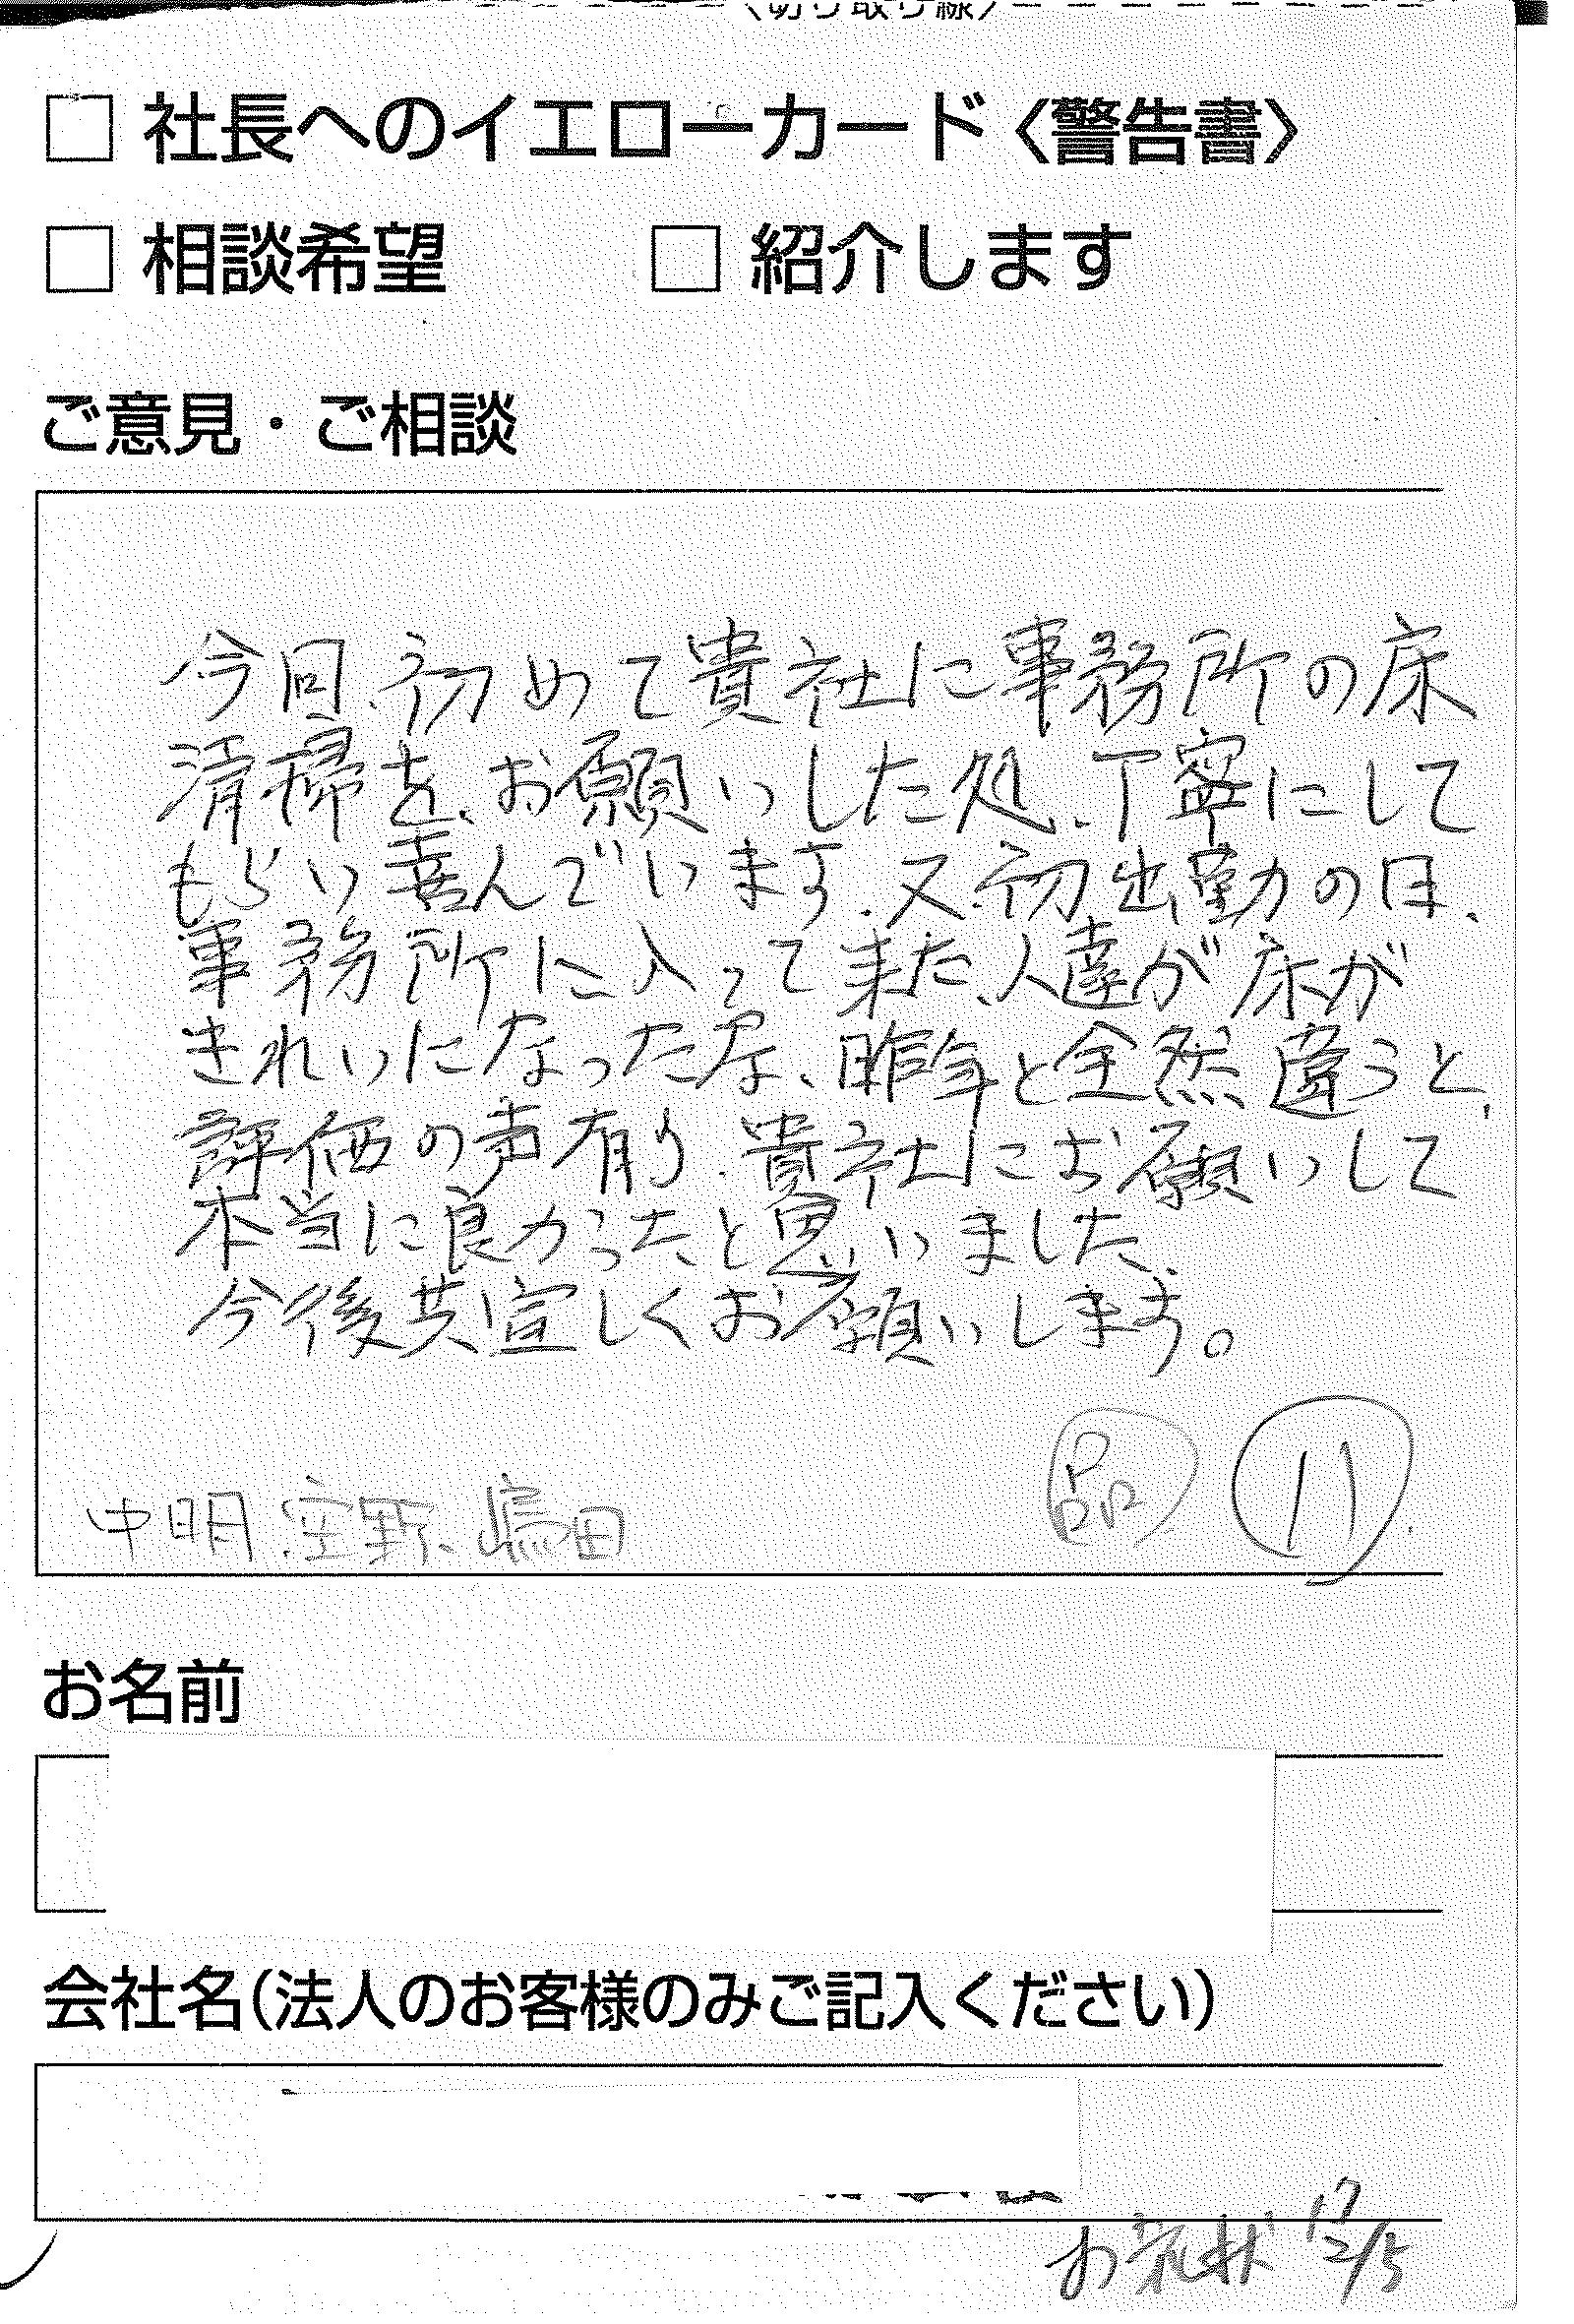 〈切り取り線〉
□ 社長へのイエローカード〈警告書〉
□ 相談希望 □ 紹介します
ご意見・ご相談
今回、初めて貴社に事務所の床
清掃を、お願いした処、丁寧にして
もらい喜んでいます。又、初出勤の日、
事務所に入って来た、人達が床が
きれいになったな、昨年と全然違うと、
評価の声有り、貴社にお願いして
本当に良かったと思いました、
今後共宜しくお願いします。
中明、空野、嶋田
品 11
お名前
会社名(法人のお客様のみご記入ください)
お礼状 17
2/5